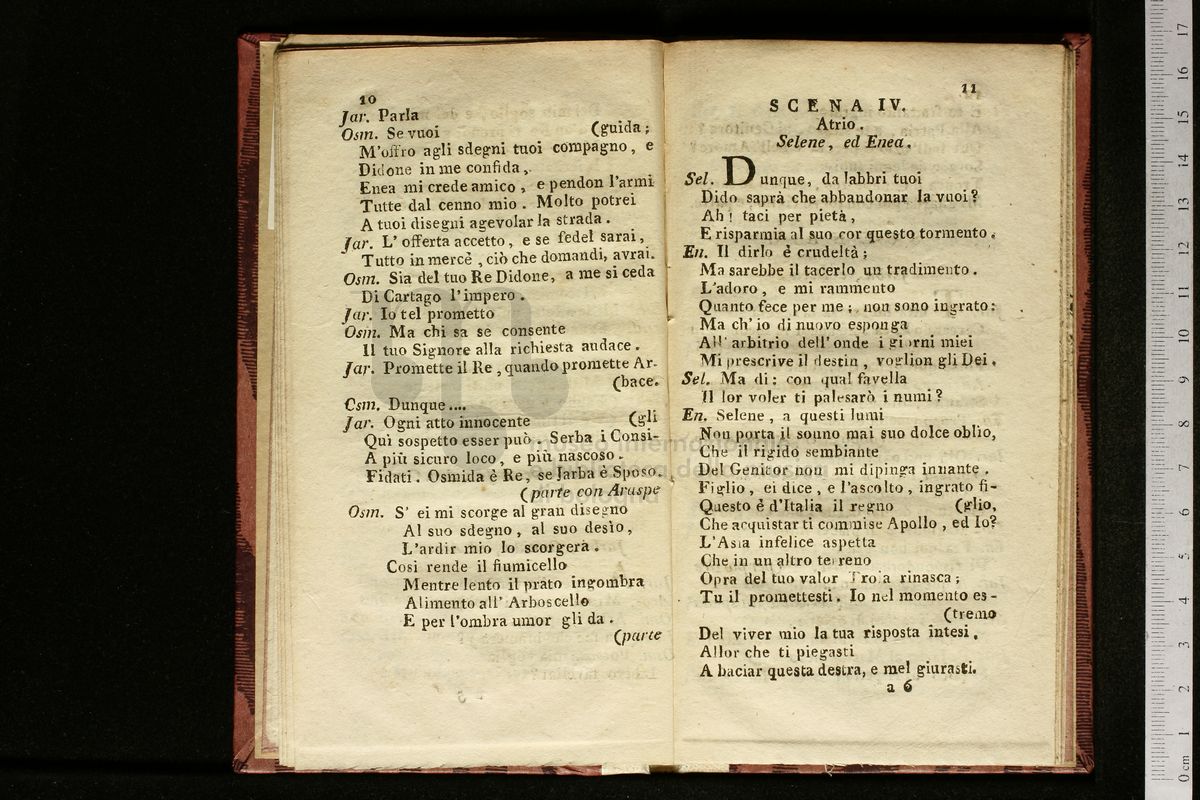 10
Jar. Parla
Osm. Se vuoi (guida ;
M'offro agli sdegni tuoi compagno , e
Didone in me confida ,
Enea mi crede amico , e pendon l'armi
Tutte dal cenno mio . Molto potrei
A tuoi disegni agevolar la strada .
Jar. L' offerta accetto , e se fedel sarai ,
Tutto in mercè , ciò che domandi, avrai.
Osm. Sia del tuo Re Didone, a me si ceda
Di Cartago l'impero .
Jar. Io tel prometto
Osm. Ma chi sa se consente
Il tuo Signore alla richiesta audace .
Jar. Promette il Re , quando promette Ar-
(bace.
Csm. Dunque ....
Jar. Ogni atto innocente (gli
Qui sospetto esser può . Serba i Consi-
A più sicuro loco , e più nascoso .
Fidati . Osmida è Re, se Jarba è Sposo.
(parte con Araspe
Osm. S' ei mi scorge al gran disegno
Al suo sdegno , al suo desìo ,
L'ardir mio lo scorgerà .
Così rende il fiumicello
Mentre lento il prato ingombra
Alimento all' Arboscello
E per l'ombra umor gli da .
(parte
11
SCENA IV.
Atrio .
Selene , ed Enea .
Sel. Dunque, da labbri tuoi
Dido saprà che abbandonar la vuoi ?
Ah ! taci per pietà ,
E risparmia al suo cor questo tormento .
En. Il dirlo è crudeltà ;
Ma sarebbe il tacerlo un tradimento .
L'adoro , e mi rammento
Quanto fece per me ; non sono ingrato :
Ma ch' io di nuovo esponga
All' arbitrio dell' onde i giorni miei
Mi prescrive il destin , voglion gli Dei .
Sel. Ma di : con qual favella
Il lor voler ti palesarò i numi ?
En. Selene , a questi lumi
Non porta il sonno mai suo dolce oblio,
Che il rigido sembiante
Del Genitor non mi dipinga innante .
Figlio , ei dice , e l'ascolto , ingrato fi-
Questo è d'Italia il regno (glio,
Che acquistar ti commise Apollo , ed Io?
L'Asia infelice aspetta
Che in un altro terreno
Opra del tuo valor Troia rinasca ;
Tu il promettesti . Io nel momento es-
(tremo
Del viver mio la tua risposta intesi ,
Allor che ti piegasti
A baciar questa destra, e mel giurasti.
a 6
0 cm 1 2 3 4 5 6 7 8 9 10 11 12 13 14 15 16 17